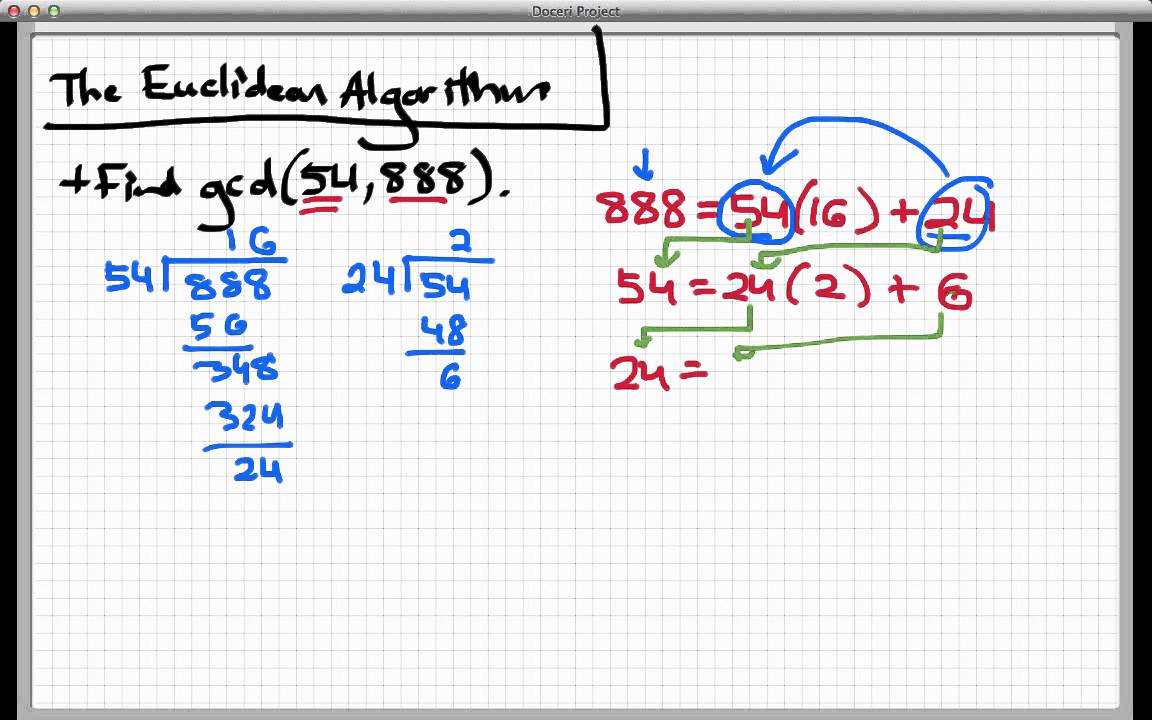 Doceri Project
The Euclidean Algorithm
+Find gcd(54, 888).
16
54 888
56
348
324
24
2
24 54
48
6
888 = 54(16) + 24
54 = 24(2) + 6
24 =